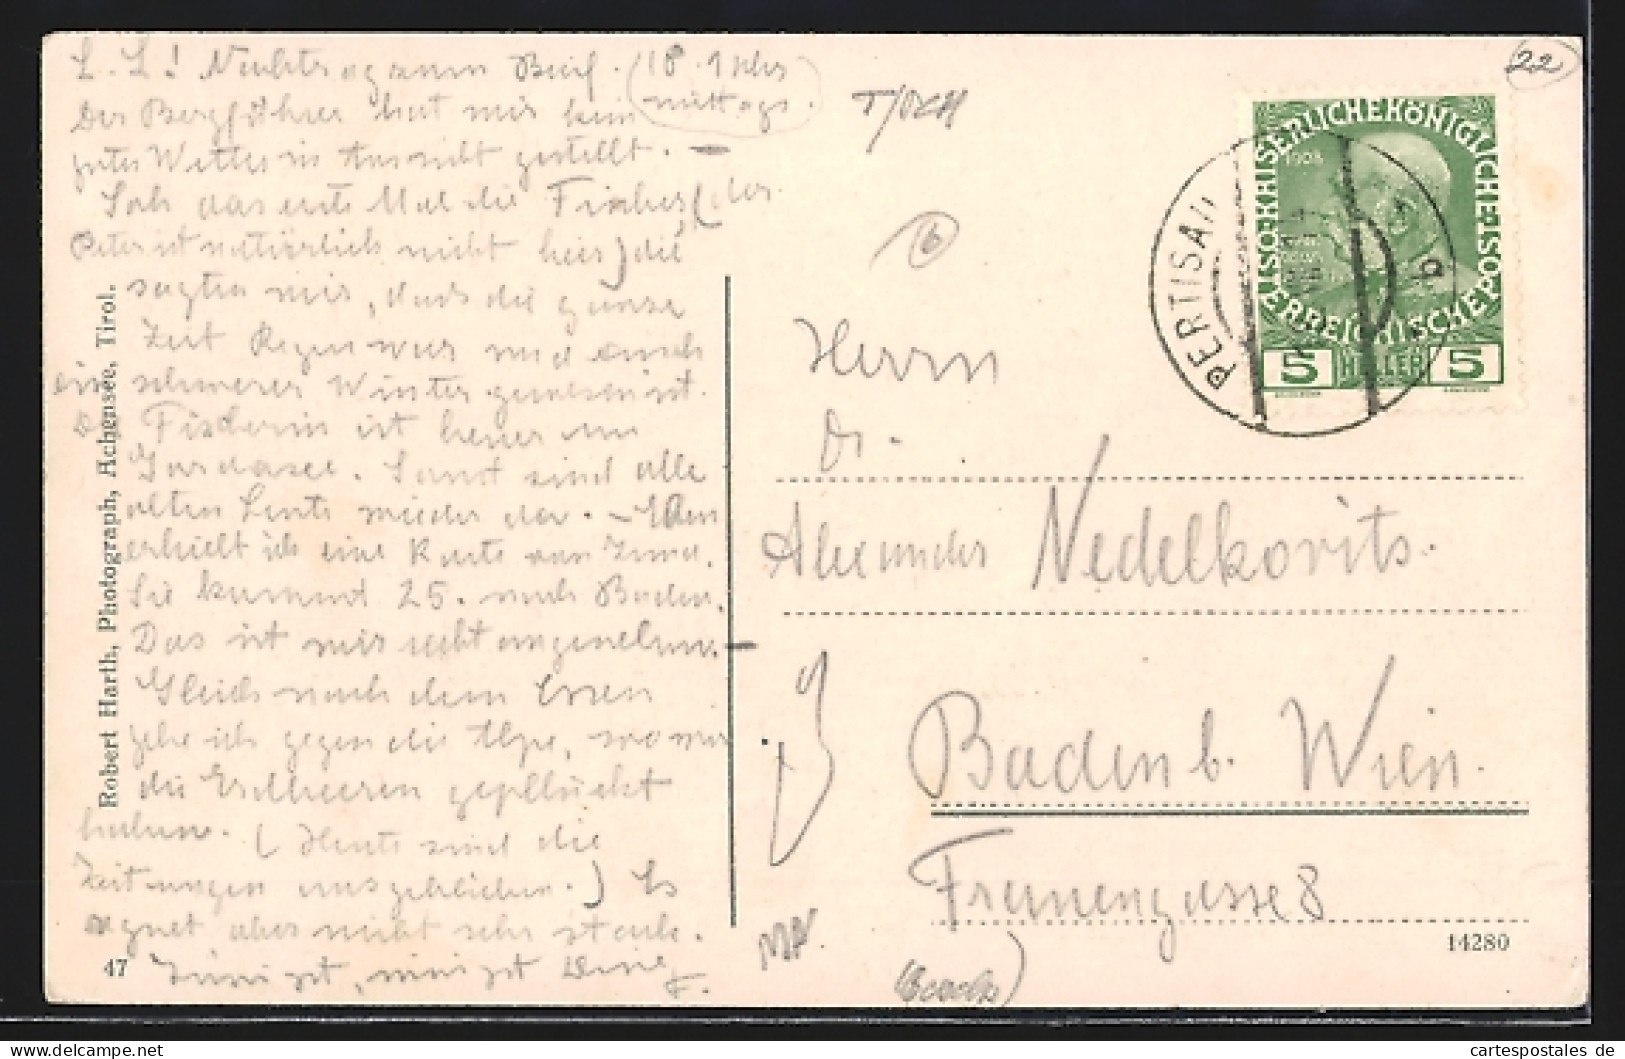 L. L! Nachtrag zum Brief. (18. 1 Uhr
mittags.
Der Bergführer hat mir kein
gutes Wetter in Aussicht gestellt. —
Sah das erste Mal die Fischer, (der
Peter ist natürlich nicht hier) die
sagten mir, dass die ganze
Zeit Regen war und auch
ein schwerer Winter gewesen ist.
D Fischerin ist heuer am
Gardasee. Sonst sind alle
alten Leute wieder da. –
erhielt ich eine Karte von
Sie kommt 25. nach Baden.
Das ist mir recht angenehm. —
Gleich nach dem Essen
gehe ich gegen die Alpe, wo wir
die Erdbeeren gepflückt
haben. (Heute sind die
Zeitungen ausgeblieben.) Es
regnet aber nicht sehr stark.
Robert Harth, Photograph, Achensee, Tirol.
47
22
T/OCH
6
PERTISAU
KAISERLICHE KÖNIGLICHE ÖSTERREICHISCHE POST
1908
5 HELLER 5
Herrn
Dr.
Alexander Nedelkovits.
Baden b. Wien.
Frauengasse 8
14280
www.cartespostales.de
cartespostales de